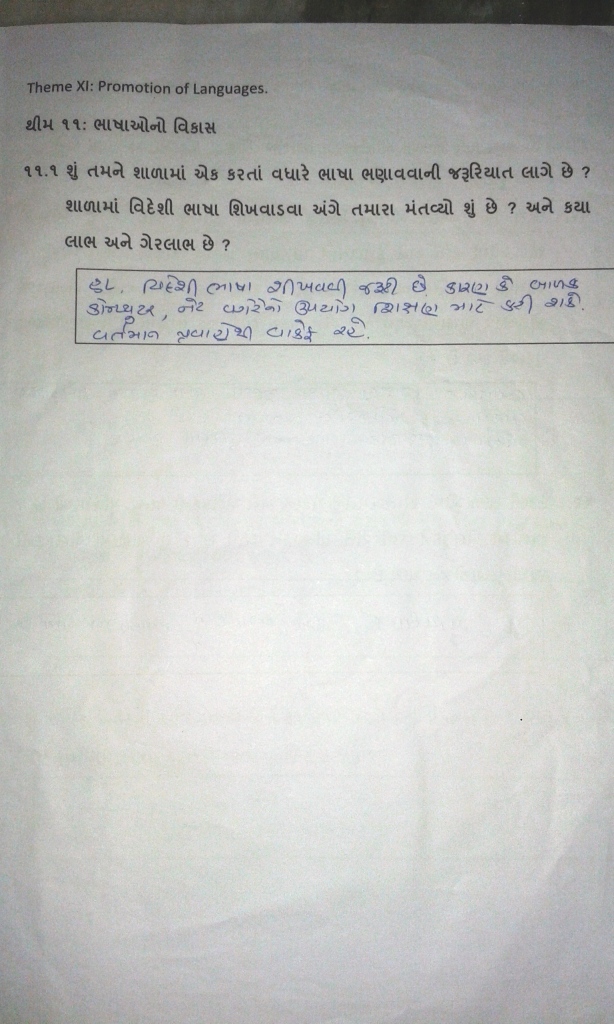 Theme XI: Promotion of Languages.
થીમ ૧૧: ભાષાઓનો વિકાસ
૧૧.૧ શું તમને શાળામાં એક કરતાં વધારે ભાષા ભણાવવાની જરૂરિયાત લાગે છે ?
શાળામાં વિદેશી ભાષા શિખવાડવા અંગે તમારા મંતવ્યો શું છે ? અને કયા
લાભ અને ગેરલાભ છે ?
હા. વિદેશી ભાષા શીખવવી જરૂરી છે. કારણ કે બાળક
કોમ્પ્યુટર, નેટ વગેરેનો ઉપયોગ શિક્ષણ માટે કરી શકે.
વર્તમાન પ્રવાહોથી વાકેફ રહે.